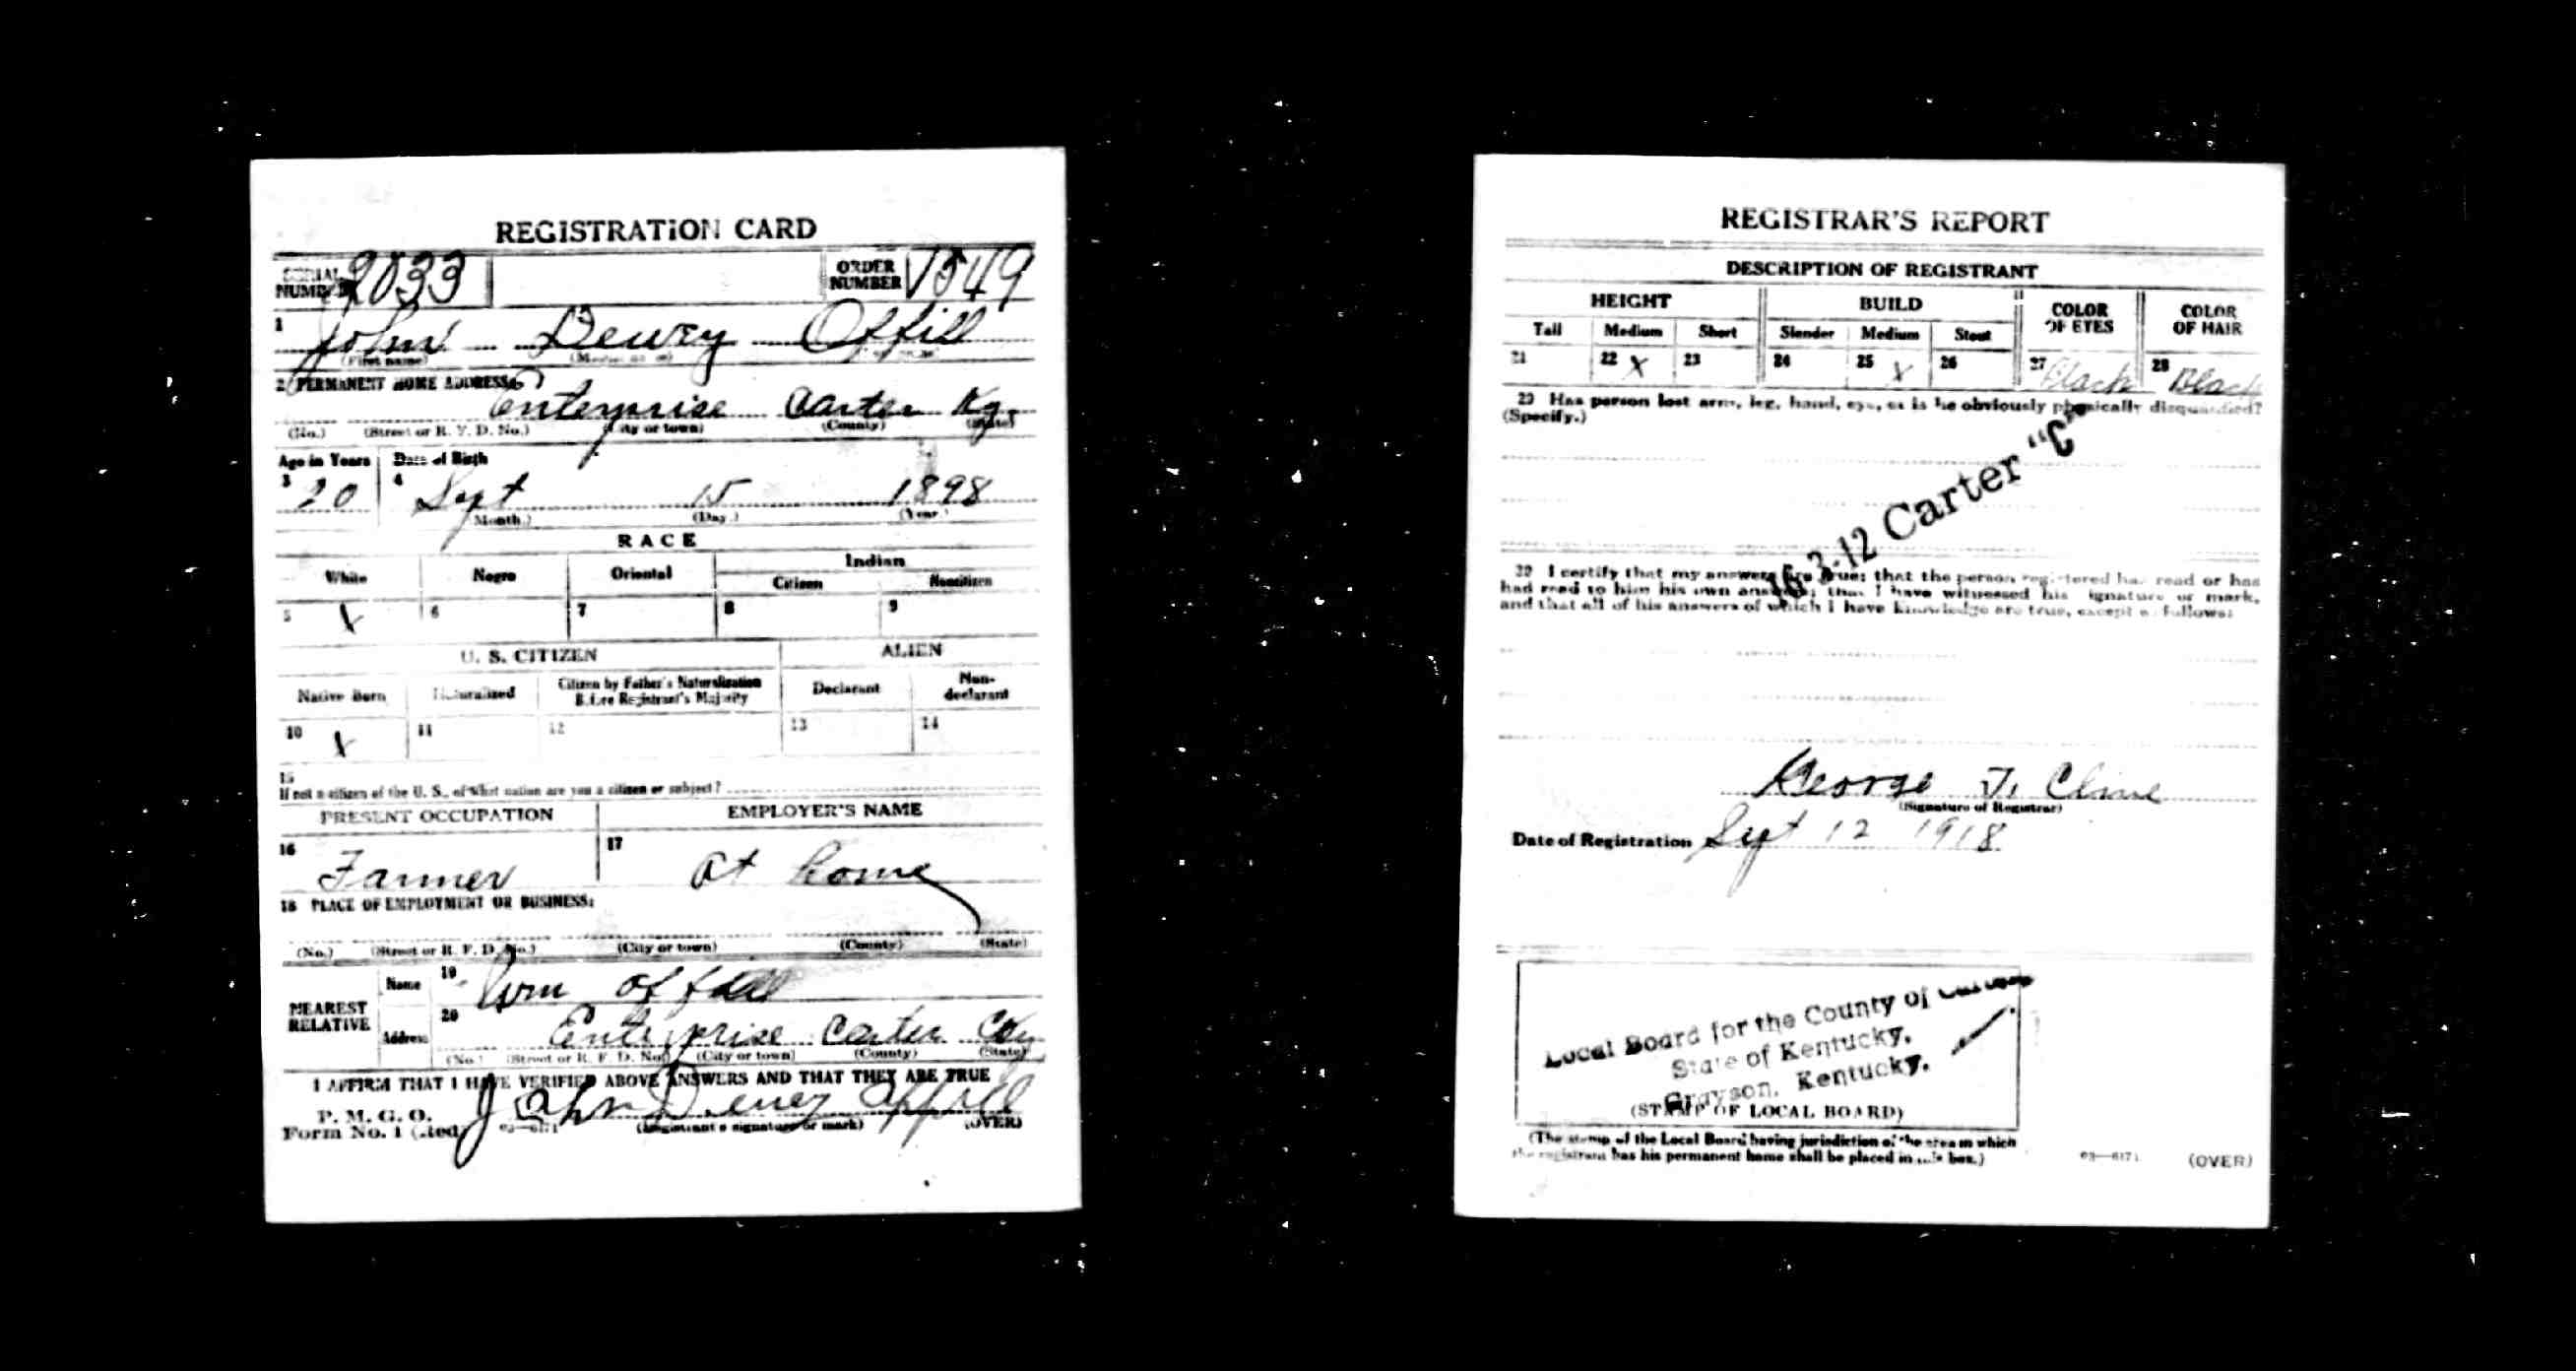 REGISTRATION CARD
SERIAL NUMBER 2033
ORDER NUMBER 1549
1 John Dewey Offill
(First name)
2 PERMANENT HOME ADDRESS:
Enterprise Carter Ky.
(No.) (Street or R. F. D. No.) (City or town) (County) (State)
Age in Years Date of Birth
3 20 4 Sept 15 1898
(Month.) (Day.) (Year.)
RACE
White Negro Oriental Indian
Citizen Noncitizen
5 X 6 7 8 9
U. S. CITIZEN ALIEN
Native Born Naturalized Citizen by Father's Naturalization Before Registrant's Majority Declarant Non-declarant
10 X 11 12 13 14
15
If not a citizen of the U. S., of what nation are you a citizen or subject?
PRESENT OCCUPATION EMPLOYER'S NAME
16 Farmer 17 at home
18 PLACE OF EMPLOYMENT OR BUSINESS:
(No.) (Street or R. F. D. No.) (City or town) (County) (State)
NEAREST RELATIVE
Name 19 Wm Offill
Address 20 Enterprise Carter Ky
(No.) (Street or R. F. D. No.) (City or town) (County) (State)
I AFFIRM THAT I HAVE VERIFIED ABOVE ANSWERS AND THAT THEY ARE TRUE
P. M. G. O.
Form No. 1 (Red) 03—6171 John Dewey Offill
(Registrant's signature or mark) (OVER)
REGISTRAR'S REPORT
DESCRIPTION OF REGISTRANT
HEIGHT BUILD COLOR OF EYES COLOR OF HAIR
Tall Medium Short Slender Medium Stout
21 22 X 23 24 25 X 26 27 Black 28 Black
29 Has person lost arm, leg, hand, eye, or is he obviously physically disqualified?
(Specify.)
16-3-12 Carter "C"
30 I certify that my answers are true; that the person registered has read or has
had read to him his own answers; that I have witnessed his signature or mark,
and that all of his answers of which I have knowledge are true, except as follows:
George T. Cline
(Signature of Registrar)
Date of Registration Sept 12 1918
Local Board for the County of Carter
State of Kentucky,
Grayson, Kentucky.
(STAMP OF LOCAL BOARD)
(The stamp of the Local Board having jurisdiction of the area in which
the registrant has his permanent home shall be placed in this box.)
03—6171 (OVER)